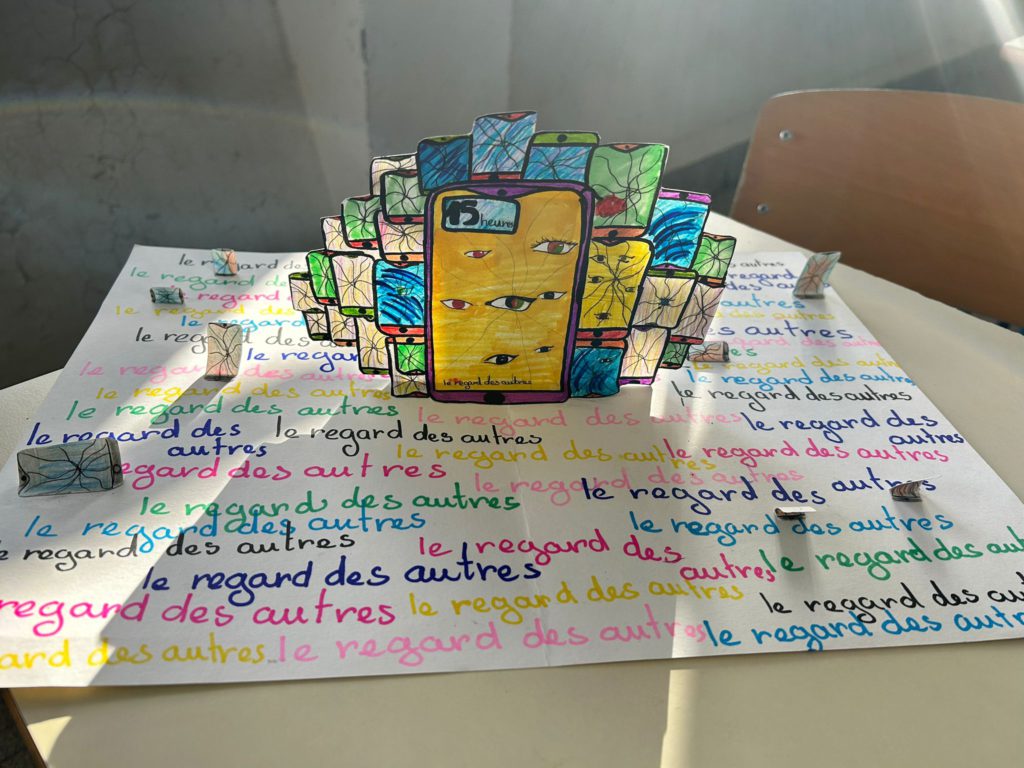 15 heures
le regard des autres
le regard d
autres
le regard des
regard
le regard
le regard
le regard
le regard
autres
le regar
le regard des autres
le regard des autres
le regard des autres
le regard des autres
le regard des autres
le regard des autres
le regard des autres
le regard des autres
le regard des autres
le regard des autres
le regard des autres
regard des autres
le regard des autres
le regard des autres
le regard des autres
le regard des autres
le regard des autres
le regard des autres
le regard des autres
le regard des autres
le regard des aut
le regard des autres
regard des autres
le regard des autres
le regard des au
ard des autres
le regard des autres
le regard des autr